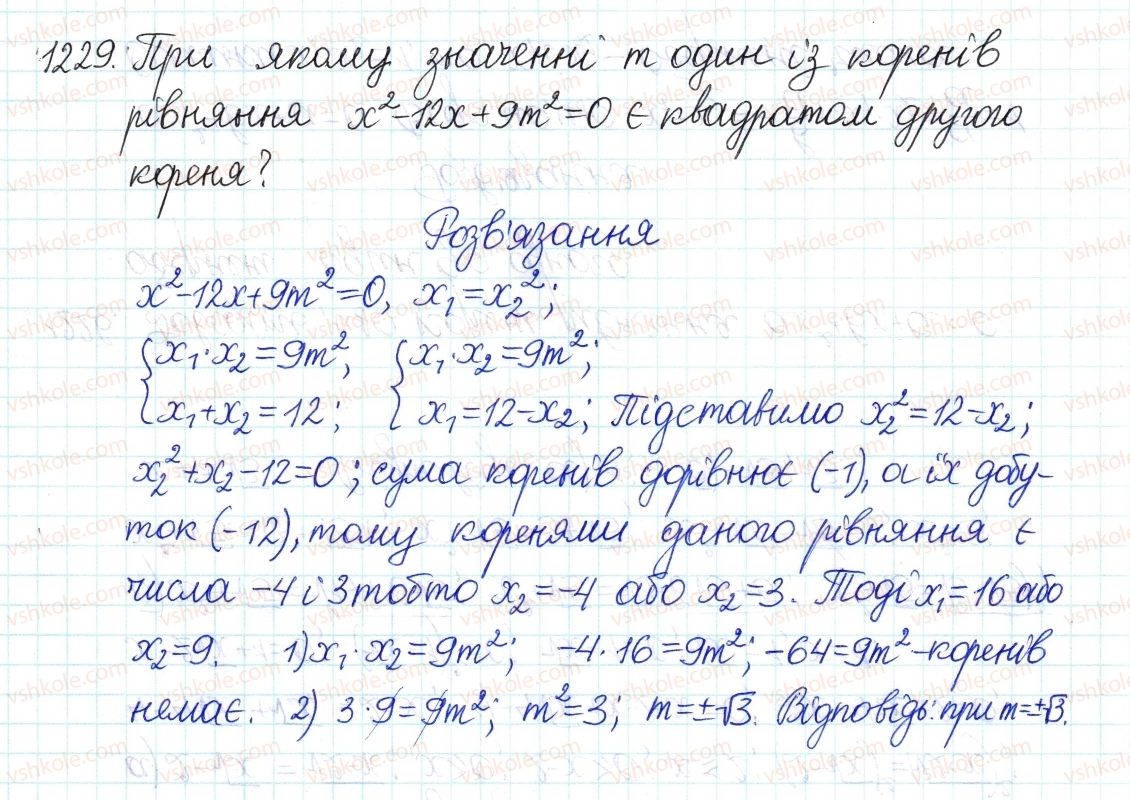 1229. При якому значенні m один із коренів
рівняння x²-12x+9m²=0 є квадратом другого
кореня?
Розв'язання
x²-12x+9m²=0, x₁=x₂²;
{x₁·x₂=9m², {x₁·x₂=9m²;
x₁+x₂=12; x₁=12-x₂; Підставимо x₂²=12-x₂;
x₂²+x₂-12=0; сума коренів дорівнює (-1), а їх добу-
ток (-12), тому коренями даного рівняння є
числа -4 і 3 тобто x₂=-4 або x₂=3. Тоді x₁=16 або
x₂=9. 1) x₁·x₂=9m²; -4·16=9m²; -64=9m² - коренів
немає. 2) 3·9=9m²; m²=3; m=±√3. Відповідь: при m=±√3.